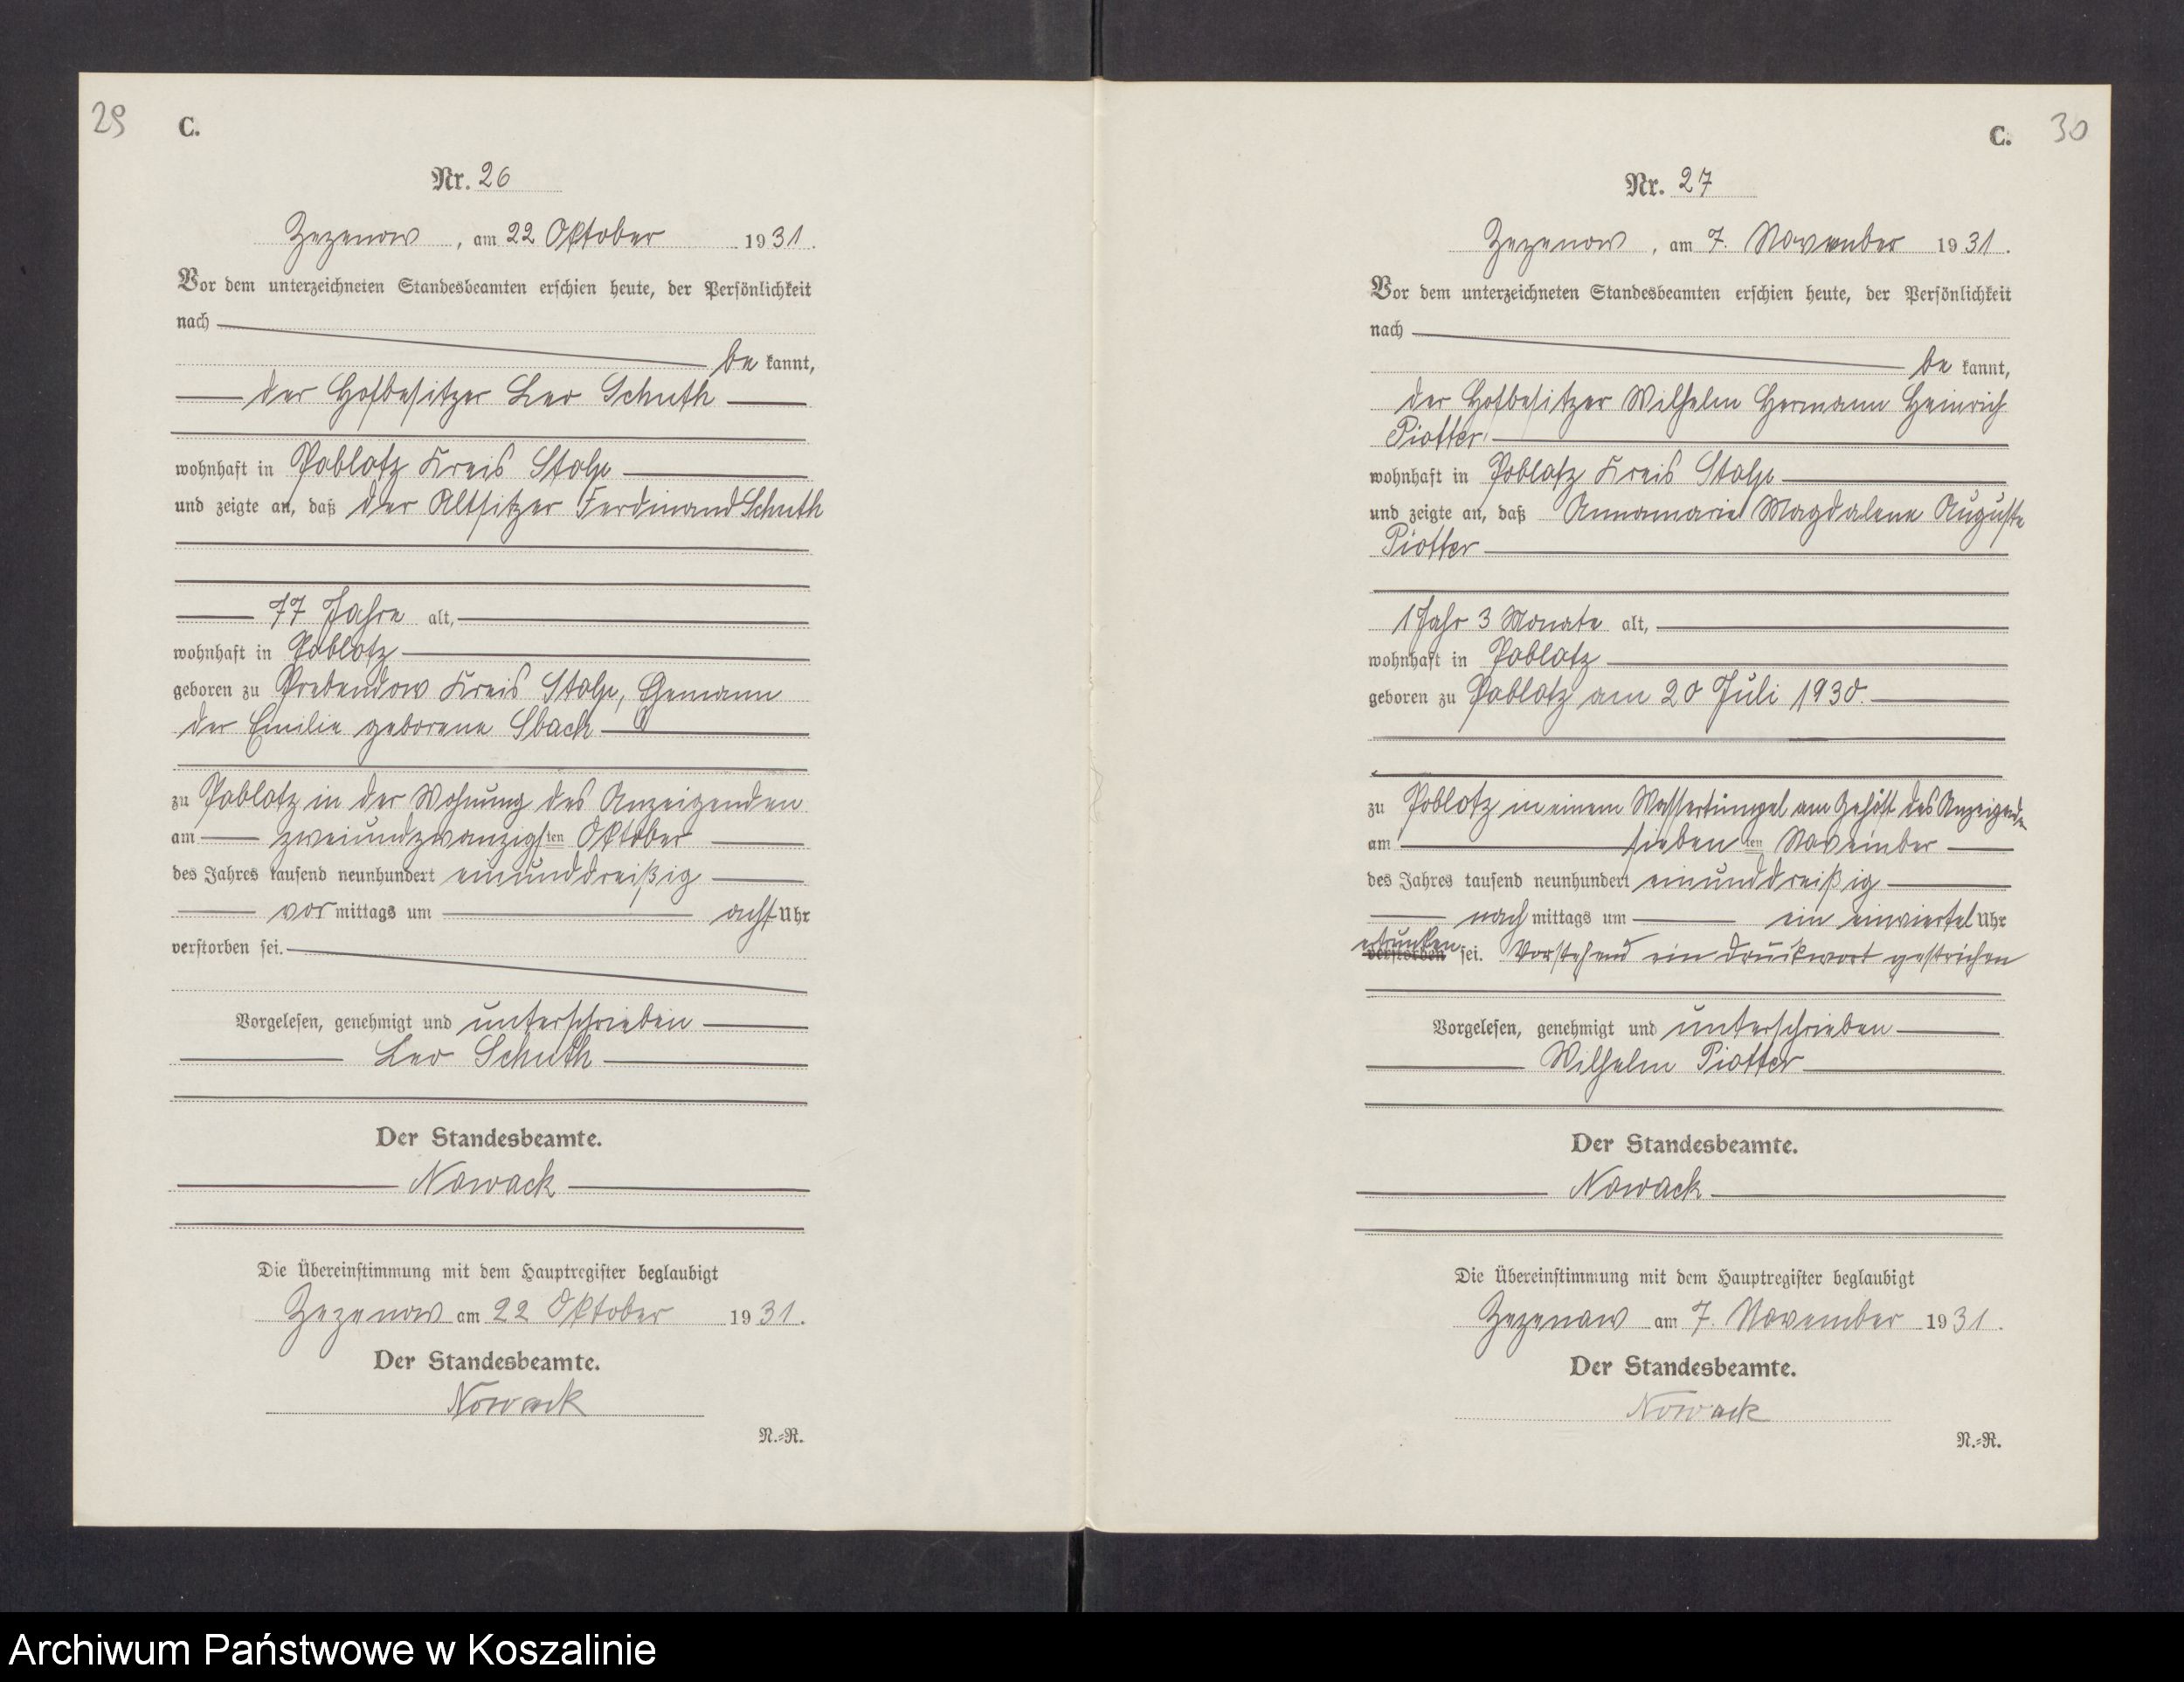 29
C.
Nr. 26
Zezenow, am 22 Oktober 1931.
Vor dem unterzeichneten Standesbeamten erschien heute, der Persönlichkeit
nach
be kannt,
der Hofbesitzer Leo Schuth
wohnhaft in Poblotz Kreis Stolp
und zeigte an, daß der Altsitzer Ferdinand Schuth
77 Jahre alt,
wohnhaft in Poblotz
geboren zu Prebendow Kreis Stolp, Ehemann
der Emilie geborene
zu Poblotz in der Wohnung des Anzeigenden
am zweiundzwanzigsten Oktober
des Jahres tausend neunhundert einunddreißig
vor mittags um acht Uhr
verstorben sei.
Vorgelesen, genehmigt und unterschrieben
Leo Schuth
Der Standesbeamte.
Nowack
Die Übereinstimmung mit dem Hauptregister beglaubigt
Zezenow am 22 Oktober 1931.
Der Standesbeamte.
Nowack
N.=R.
C. 30
Nr. 27
Zezenow, am 7. November 1931.
Vor dem unterzeichneten Standesbeamten erschien heute, der Persönlichkeit
nach
be kannt,
der Hofbesitzer Wilhelm Hermann Heinrich
Piotter
wohnhaft in Poblotz Kreis Stolp
und zeigte an, daß Annamarie Magdalene Auguste
Piotter
1 Jahr 3 Monate alt,
wohnhaft in Poblotz
geboren zu Poblotz am 20 Juli 1930.
zu Poblotz in einem Wassertümpel am Gehöft des Anzeigenden
am siebenten November
des Jahres tausend neunhundert einunddreißig
nach mittags um ein einviertel Uhr
ertrunken
verstorben sei. Vorstehend ein Druckwort gestrichen
Vorgelesen, genehmigt und unterschrieben
Wilhelm Piotter
Der Standesbeamte.
Nowack
Die Übereinstimmung mit dem Hauptregister beglaubigt
Zezenow am 7. November 1931.
Der Standesbeamte.
Nowack
N.=R.
Archiwum Państwowe w Koszalinie